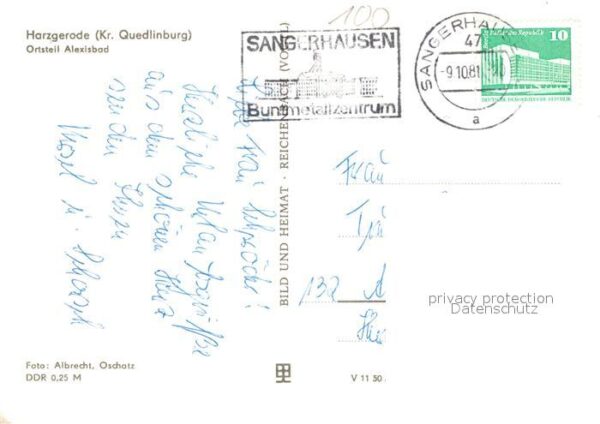 Harzgerode (Kr. Quedlinburg)
Ortsteil Alexisbad
100
SANGERHAUSEN
Buntmetallzentrum
SANGERHAU
47
-9.10.81
a
10
DEUTSCHE DEMOKRATISCHE REPUBLIK
BILD UND HEIMAT · REICHENBACH (VOGTL)
Frau
Herzliche Urlaubsgrüße
aus dem schönen Harz
senden Ihnen
Frau
132
privacy protection
Datenschutz
Foto: Albrecht, Oschatz
DDR 0,25 M
V 11 50